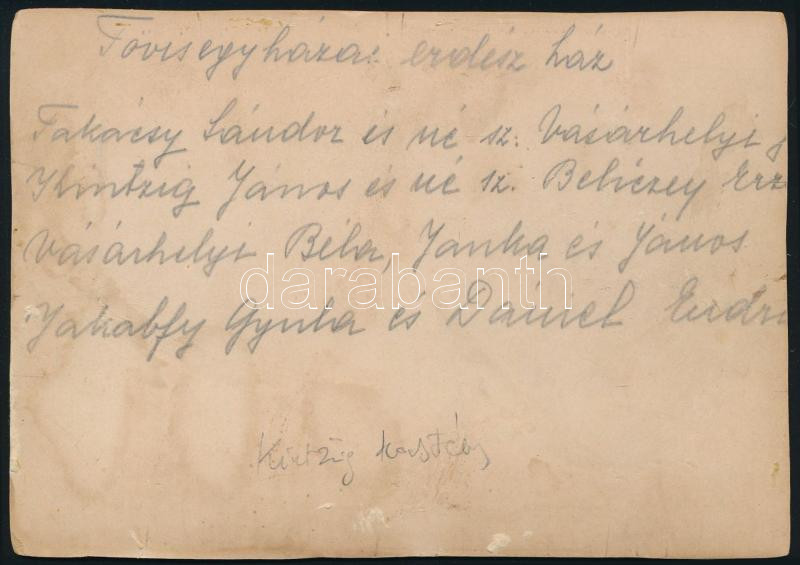 Tövisegyháza: erdész ház
Takácsy Sándor és né sz. Vásárhelyi
Kintzig János és né sz. Beliczey Erz
Vásárhelyi Béla, Janka és János
darabanth
Jakabffy Gyula és Dániel
Kintzig kastély